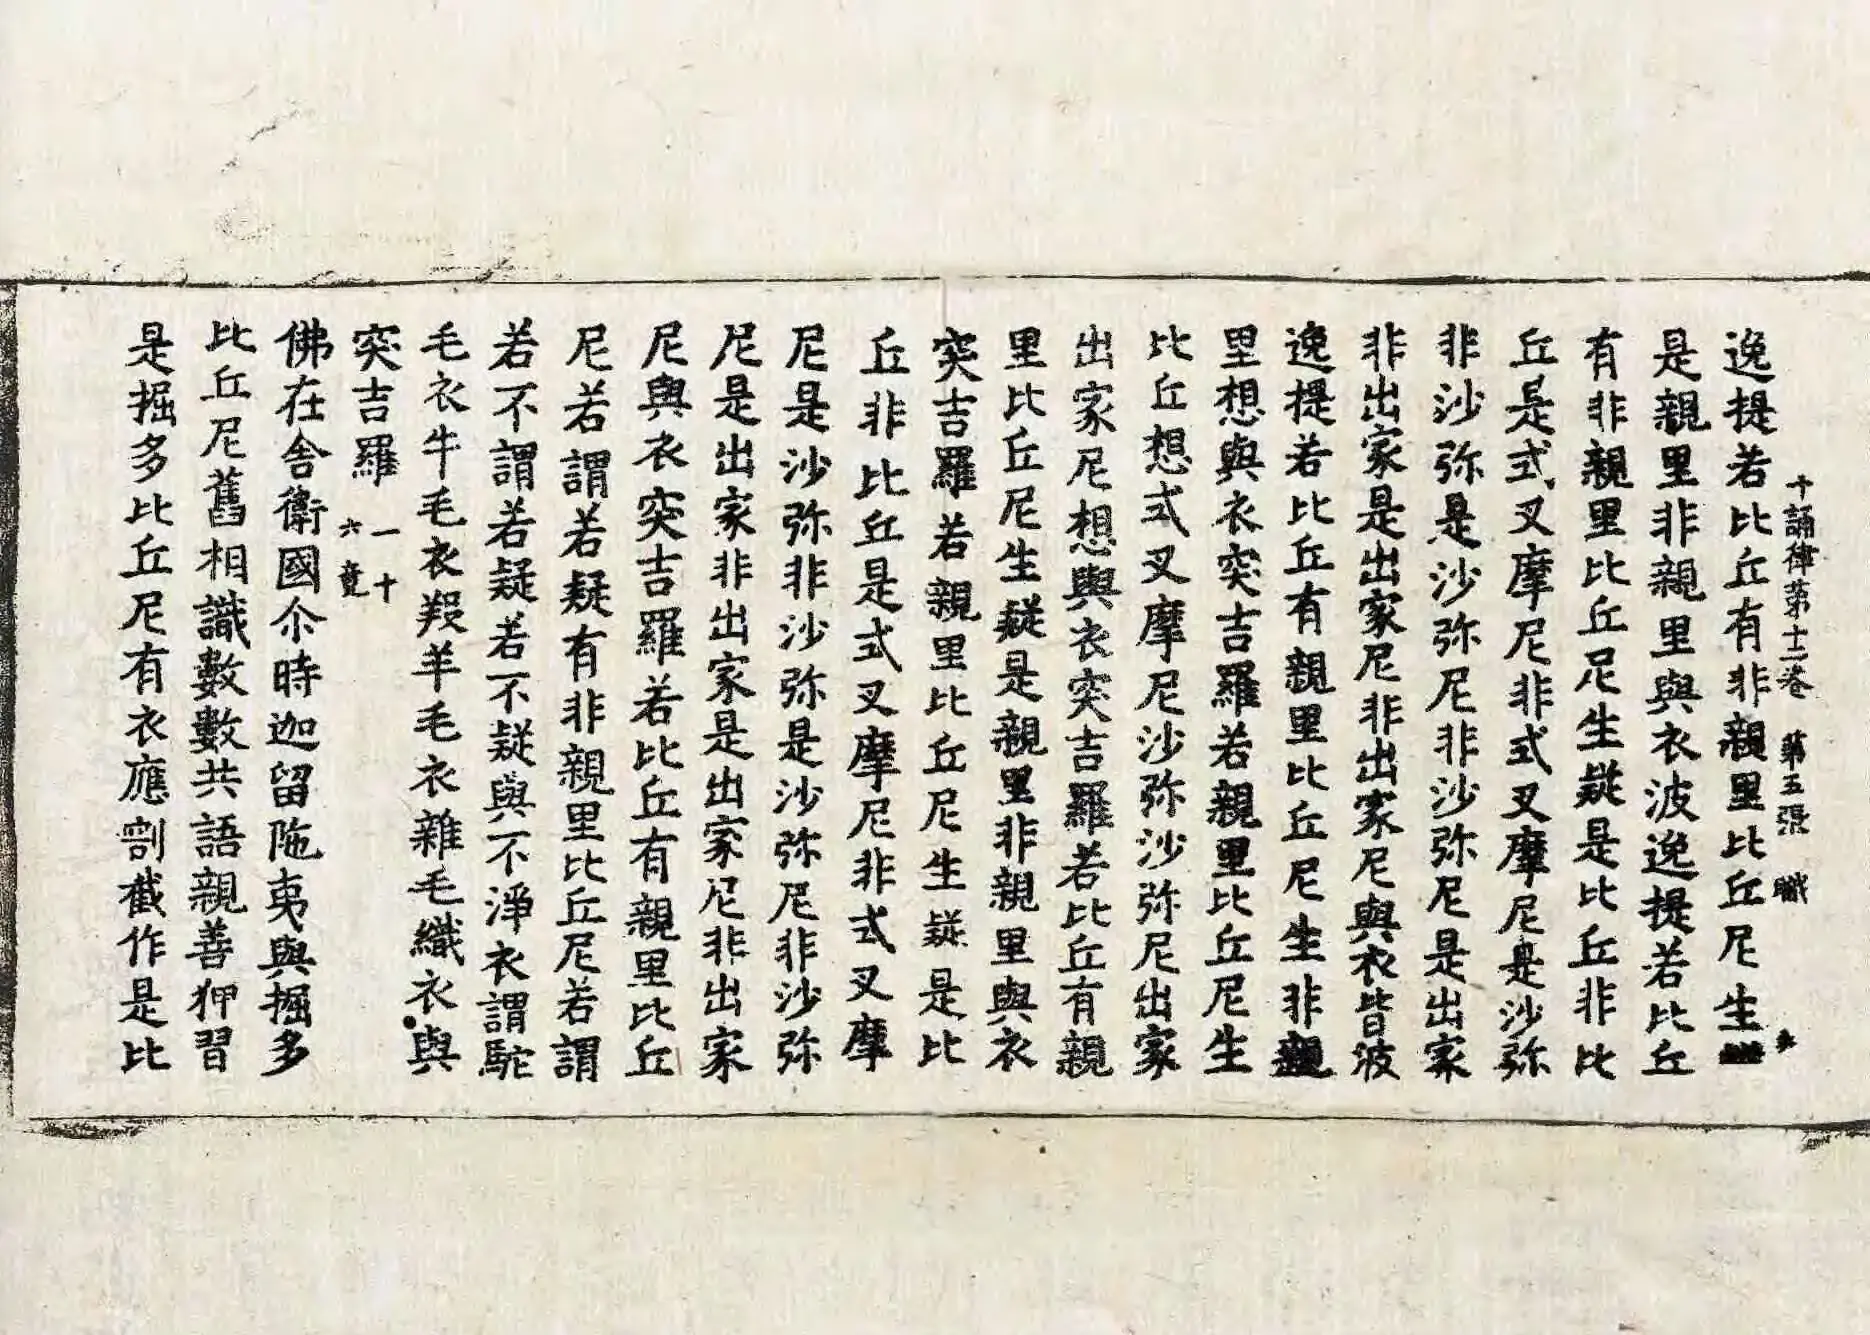 十誦律苐十二卷　苐五張　職
逸提若比丘有非親里比丘尼生
是親里非親里與衣波逸提若比丘
有非親里比丘尼生疑是比丘非比
丘是式叉摩尼非式叉摩尼是沙弥
非沙弥是沙弥尼非沙弥尼是出家
非出家是出家尼非出家尼與衣皆波
逸提若比丘有親里比丘尼生非親
里想與衣突吉羅若親里比丘尼生
比丘想式叉摩尼沙弥沙弥尼出家
出家尼想與衣突吉羅若比丘有親
里比丘尼生疑是親里非親里與衣
突吉羅若親里比丘尼生疑是比
丘非比丘是式叉摩尼非式叉摩
尼是沙弥非沙弥是沙弥尼非沙弥
尼是出家非出家是出家尼非出家
尼與衣突吉羅若比丘有親里比丘
尼若謂若疑有非親里比丘尼若謂
若不謂若疑若不疑與不淨衣謂駝
毛衣牛毛衣羖羊毛衣雜毛織衣與
突吉羅 一十
六竟
佛在舍衛國尒時迦留陁夷與掘多
比丘尼舊相識數數共語親善狎習
是掘多比丘尼有衣應割截作是比